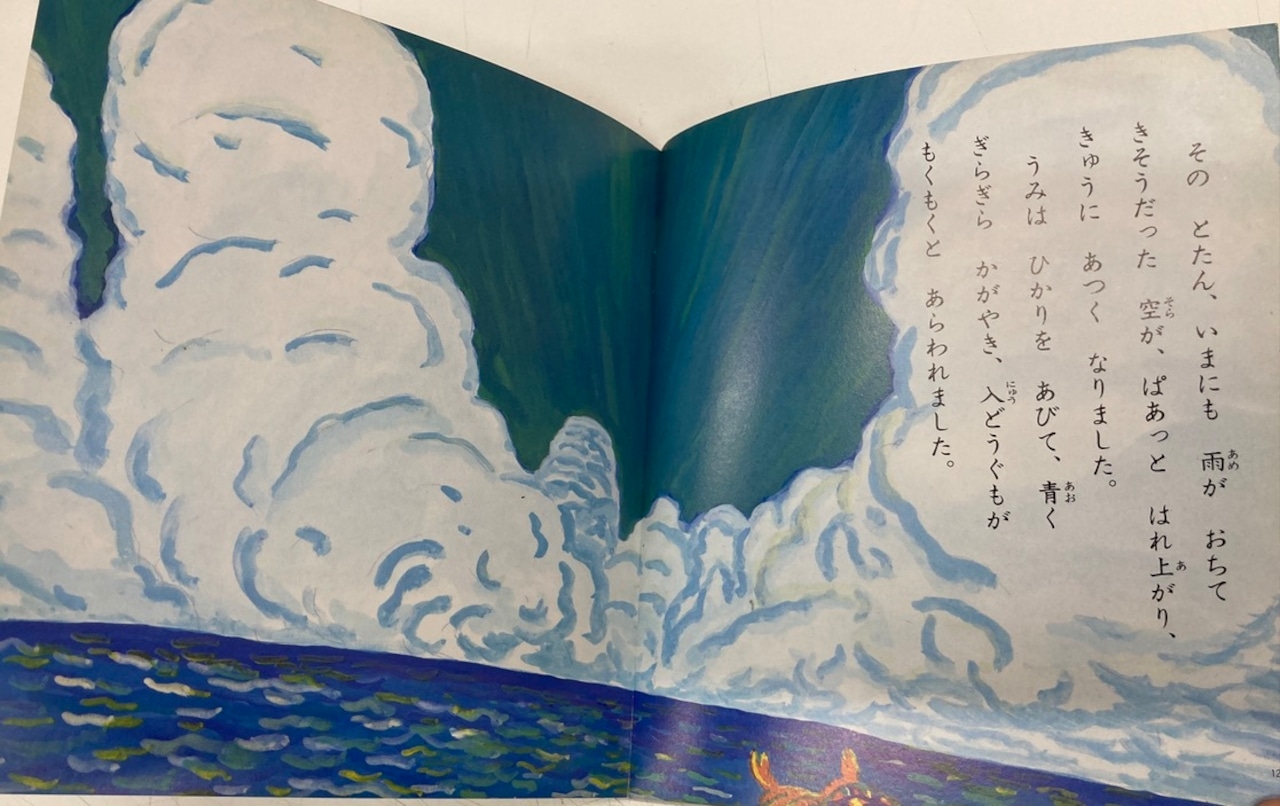 その とたん、いまにも 雨が おちて
きそうだった 空が、ぱあっと はれ上がり、
きゅうに あつく なりました。
うみは ひかりを あびて、青く
ぎらぎら かがやき、入どうぐもが
もくもくと あらわれました。
あめ
そら
あ
あお
にゅう
12